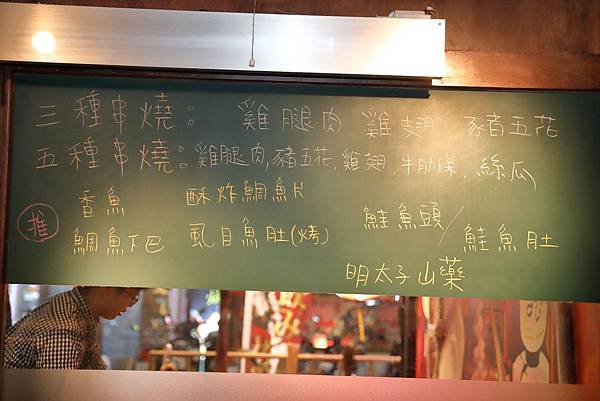 三種串燒：雞腿肉.雞翅.豬五花
五種串燒：雞腿肉,豬五花.雞翅.牛肋條.絲瓜
推
香魚 酥炸鯛魚片
鯛魚下巴 虱目魚肚(烤)
鮭魚頭/鮭魚肚
明太子山藥